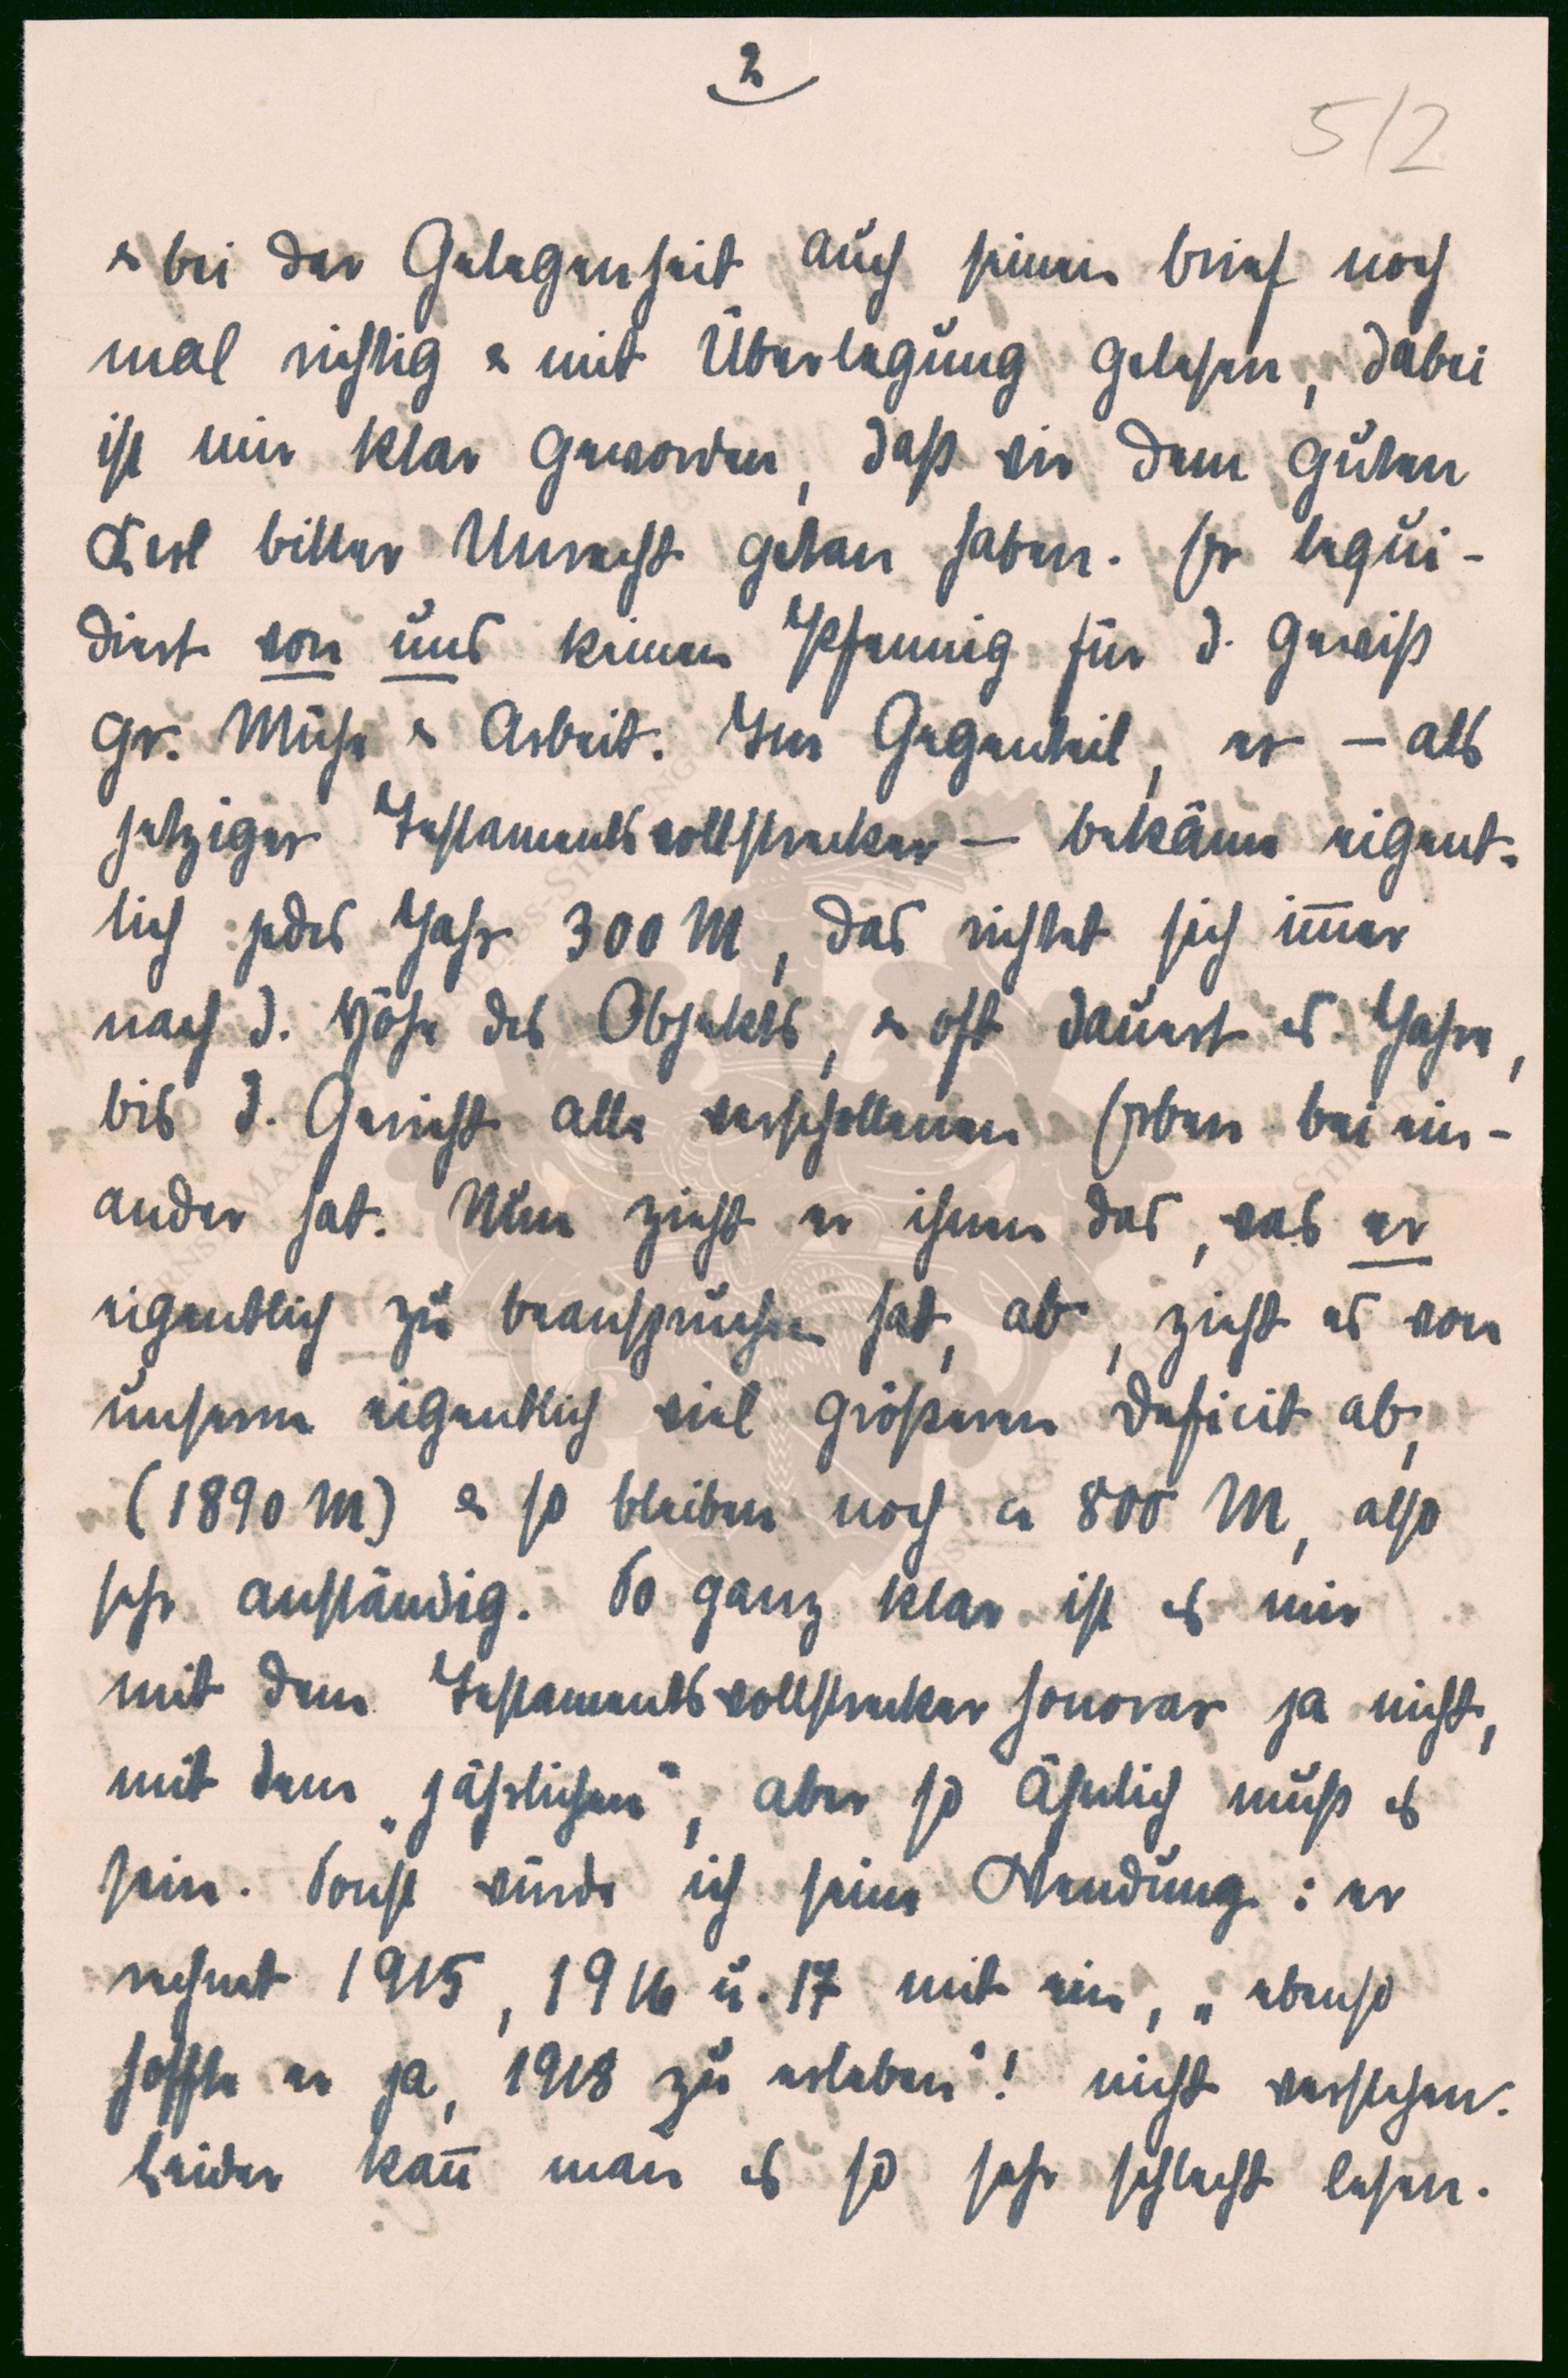 2
5/2
& bei der Gelegenheit auch seinen brief noch
mal richtig & mit Überlegung gelesen, dabei
ist mir klar geworden, daß wir dem guten
Kerl bitter Unrecht getan haben. Er lequi-
diert von uns keinen Pfennig für d. gewiß
gr. Mühe & Arbeit. Im Gegenteil, er – als
jetziger Testamentsvollstrecker – bekäme eigent-
lich jedes Jahr 300 M, das richtet sich im̅er
nach d. Höhe des Objekts, & oft dauert es Jahre,
bis d. Gericht alle verschollenen Erben bei ein-
ander hat. Nun zieht er ihnen das, was er
eigentlich zu beanspruchen hat, ab, zieht es von
unserm eigentlich viel größeren Deficit ab,
(1890 M) & so bleiben noch ca 800 M, also
sehr anständig. So ganz klar ist es mir
mit dem Testamentsvollstrecker honorar ja nicht,
mit dem „jährlichen“, aber so ähnlich muß es
sein. Sonst würde ich seine Wendung: er
rechnet 1915, 1916 u. 17 mit ein, „ebenso
hoffte er ja, 1918 zu erleben“! nicht verstehen.
Leider kan̅ man es so sehr schlecht lesen.
ERNST-MAX